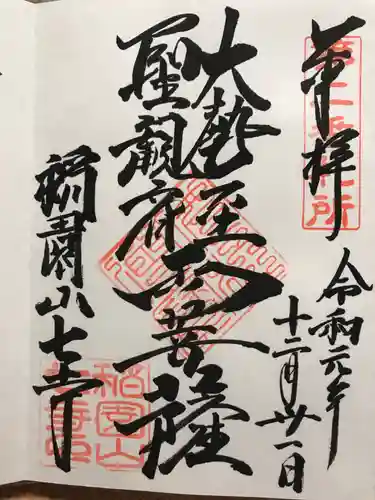 奉拝
第二番札所
令和元年
十二月廿一日
大勢至
聖観音
菩薩
稲園山七寺
稲園山